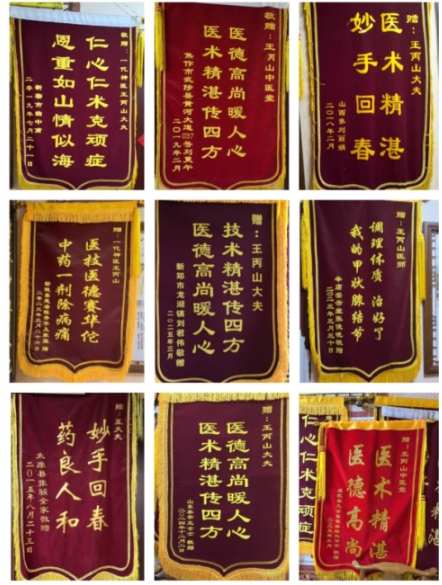 敬赠：一代神医王丙山大夫
仁心仁术克顽症
恩重如山情似海
二零一九年七月二十一日
敬赠：王丙山中医堂
医德高尚暖人心
医术精湛传四方
二〇一九年二月
赠：王丙山大夫
医术精湛
妙手回春
二〇一八年二月
赠：一代神医王丙山
医技医德赛华佗
中药一剂除病痛
赠：王丙山大夫
技术精湛传四方
医德高尚暖人心
新郑市龙湖镇刘君伟敬赠
二〇二五年三月
赠：王丙山医师
调理体质 治好了
我的甲状腺结节
赠：王大夫
妙手回春
药良人和
二〇一五年八月二十三日
赠：王丙山大夫
医德高尚暖人心
医术精湛传四方
仁心仁术克顽
赠：王丙山中医堂
医术精湛
医德高尚